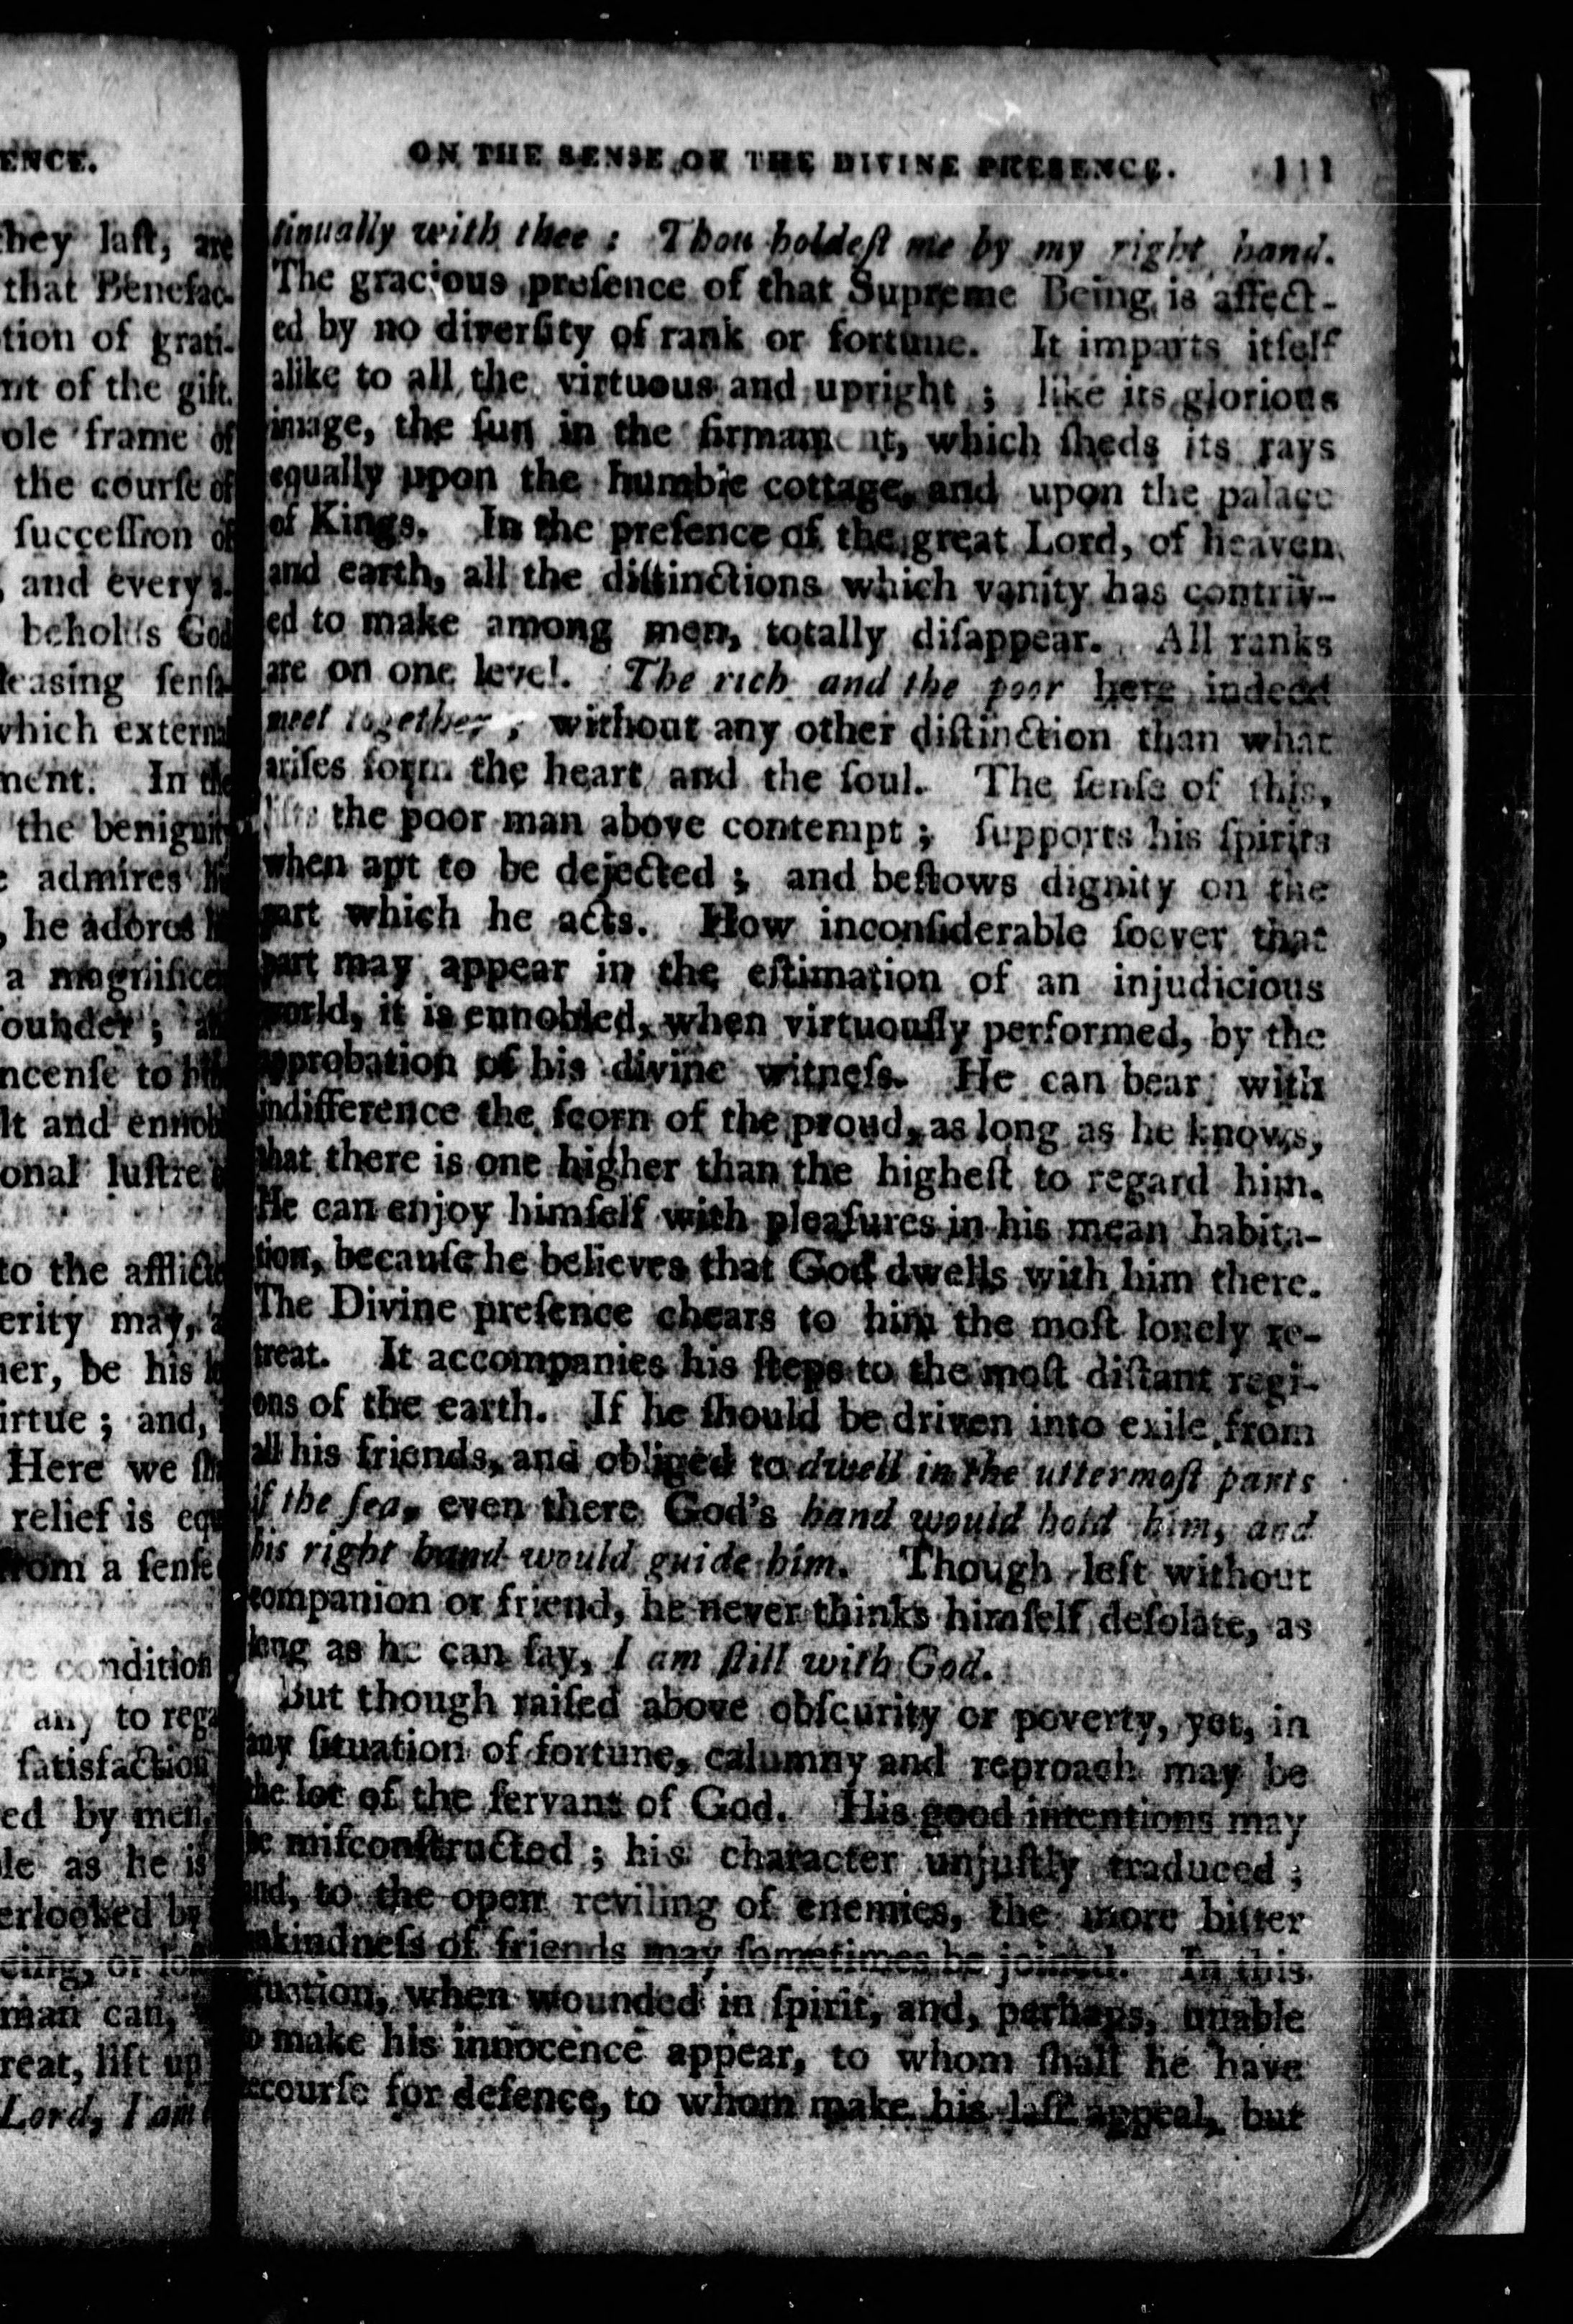 ENCE.
they laſt, are
that Benefac-
tion of grati-
nt of the gift.
ole frame of
the courſe of
ſucceſſion of
, and every
beholds God
leasing ſenſa-
which external
ment. In the
the benignity
admires
, he adores
a magnificen
founder ;
ncenſe to
lt and ennobl
onal luſtre
to the afflicte
erity may,
her, be his
irtue ; and,
Here we
relief is equ
from a ſenſe
re condition
any to rega
ſatisfaction
ed by men,
le as he is
erlooked by
eing, or
man can,
reat, lift up
Lord, I am
ON THE SENSE OF THE DIVINE PRESENCE. 111
tinually with thee : Thou holdeſt me by my right hand.
The gracious preſence of that Supreme Being is affect-
ed by no diverſity of rank or fortune. It imparts itſelf
alike to all the virtuous and upright ; like its glorious
image, the ſun in the firmament, which ſheds its rays
equally upon the humble cottage, and upon the palace
of Kings. In the preſence of the great Lord, of heaven
and earth, all the diſtinctions which vanity has contriv-
ed to make among men, totally diſappear. All ranks
are on one level. The rich and the poor here indeed
meet together, without any other diſtinction than what
ariſes form the heart and the ſoul. The ſenſe of this,
lifts the poor man above contempt ; ſupports his ſpirits
when apt to be dejected ; and beſtows dignity on the
part which he acts. How inconſiderable ſoever that
part may appear in the eſtimation of an injudicious
world, it is ennobled, when virtuouſly performed, by the
approbation of his divine witneſs. He can bear with
indifference the ſcorn of the proud, as long as he knows,
that there is one higher than the higheſt to regard him.
He can enjoy himſelf with pleaſures in his mean habita-
tion, becauſe he believes that God dwells with him there.
The Divine preſence chears to him the moſt lonely re-
treat. It accompanies his ſteps to the moſt diſtant regi-
ons of the earth. If he ſhould be driven into exile from
all his friends, and obliged to dwell in the uttermoſt parts
of the ſea, even there God's hand would hold him, and
his right hand would guide him. Though left without
companion or friend, he never thinks himſelf deſolate, as
long as he can ſay, I am ſtill with God.
But though raiſed above obſcurity or poverty, yet, in
any ſituation of fortune, calumny and reproach may be
the lot of the ſervant of God. His good intentions may
be miſconſtructed ; his character unjuſtly traduced ;
and, to the open reviling of enemies, the more bitter
unkindneſs of friends may ſometimes be joined. In this
ſituation, when wounded in ſpirit, and, perhaps, unable
to make his innocence appear, to whom ſhall he have
recourſe for defence, to whom make his laſt appeal, but